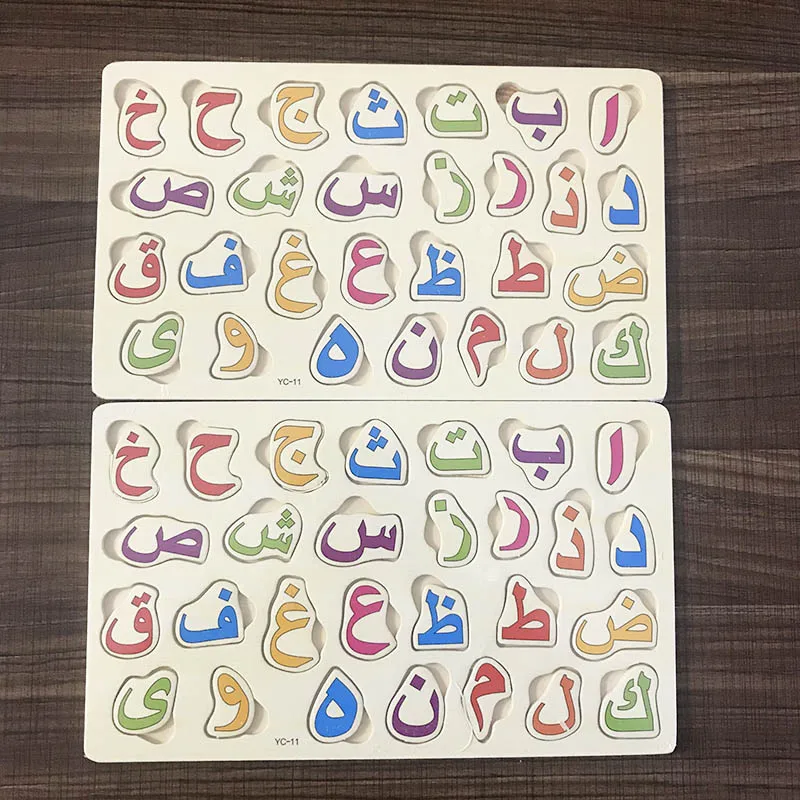 ا ب ت ث ج ح خ
د ذ ر ز س ش ص
ض ط ظ ع غ ف ق
ك ل م ن ه و ى
YC-11
ا ب ت ث ج ح خ
د ذ ر ز س ش ص
ض ط ظ ع غ ف ق
ك ل م ن ه و ى
YC-11